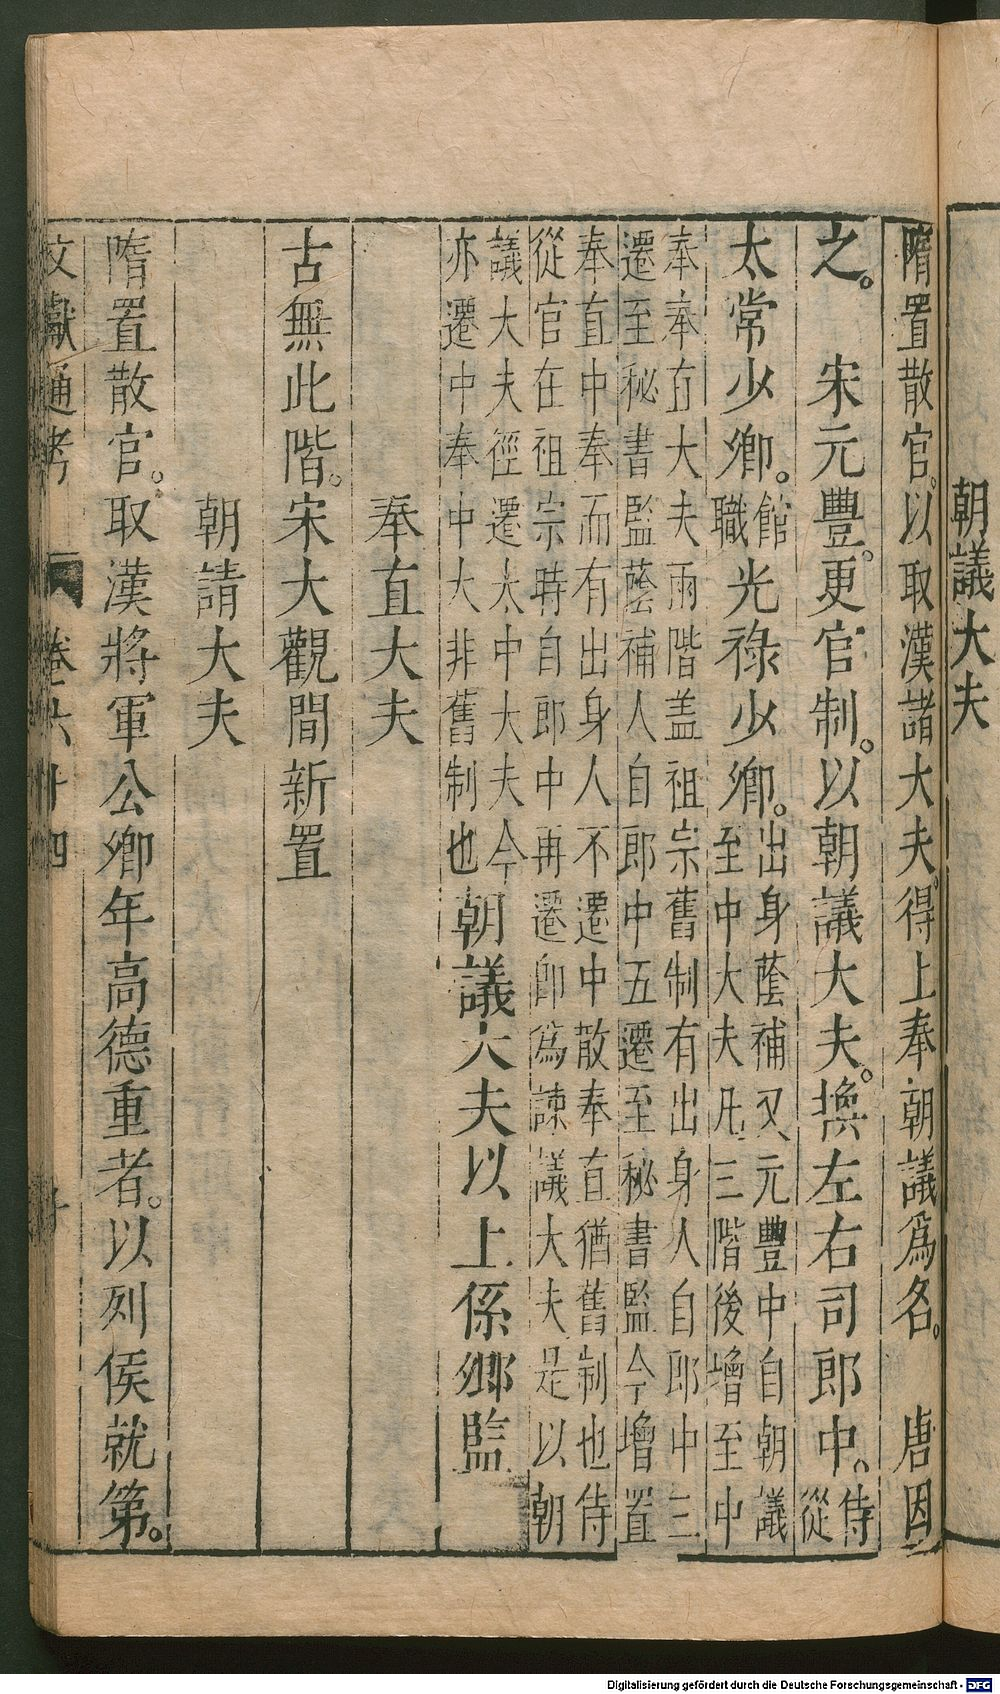 朝議大夫
隋置散官。以取漢諸大夫。得上奉朝議爲名。　唐因
之。　宋元豐。更官制。以朝議大夫。換左右司郎中。侍從
太常少卿。館職光祿少卿。出身蔭補又元豐中自朝議
至中大夫凡三階後增至中
奉奉直大夫雨階盖祖宗舊制有出身人自郎中三
遷至秘書監蔭補人自郎中五遷至秘書監今增置
奉直中奉而有出身人不遷中散奉直猶舊制也侍
從官在祖宗時自郎中再遷卽爲諫議大夫是以朝
議大夫徑遷太中大夫今
亦遷中奉中大非舊制也朝議大夫以上係卿監
奉直大夫
古無此階。宋大觀間新置
朝請大夫
隋置散官。取漢將軍公卿年高德重者。以列侯就第。
文獻通考　卷六十四
Digitalisierung gefördert durch die Deutsche Forschungsgemeinschaft - DFG